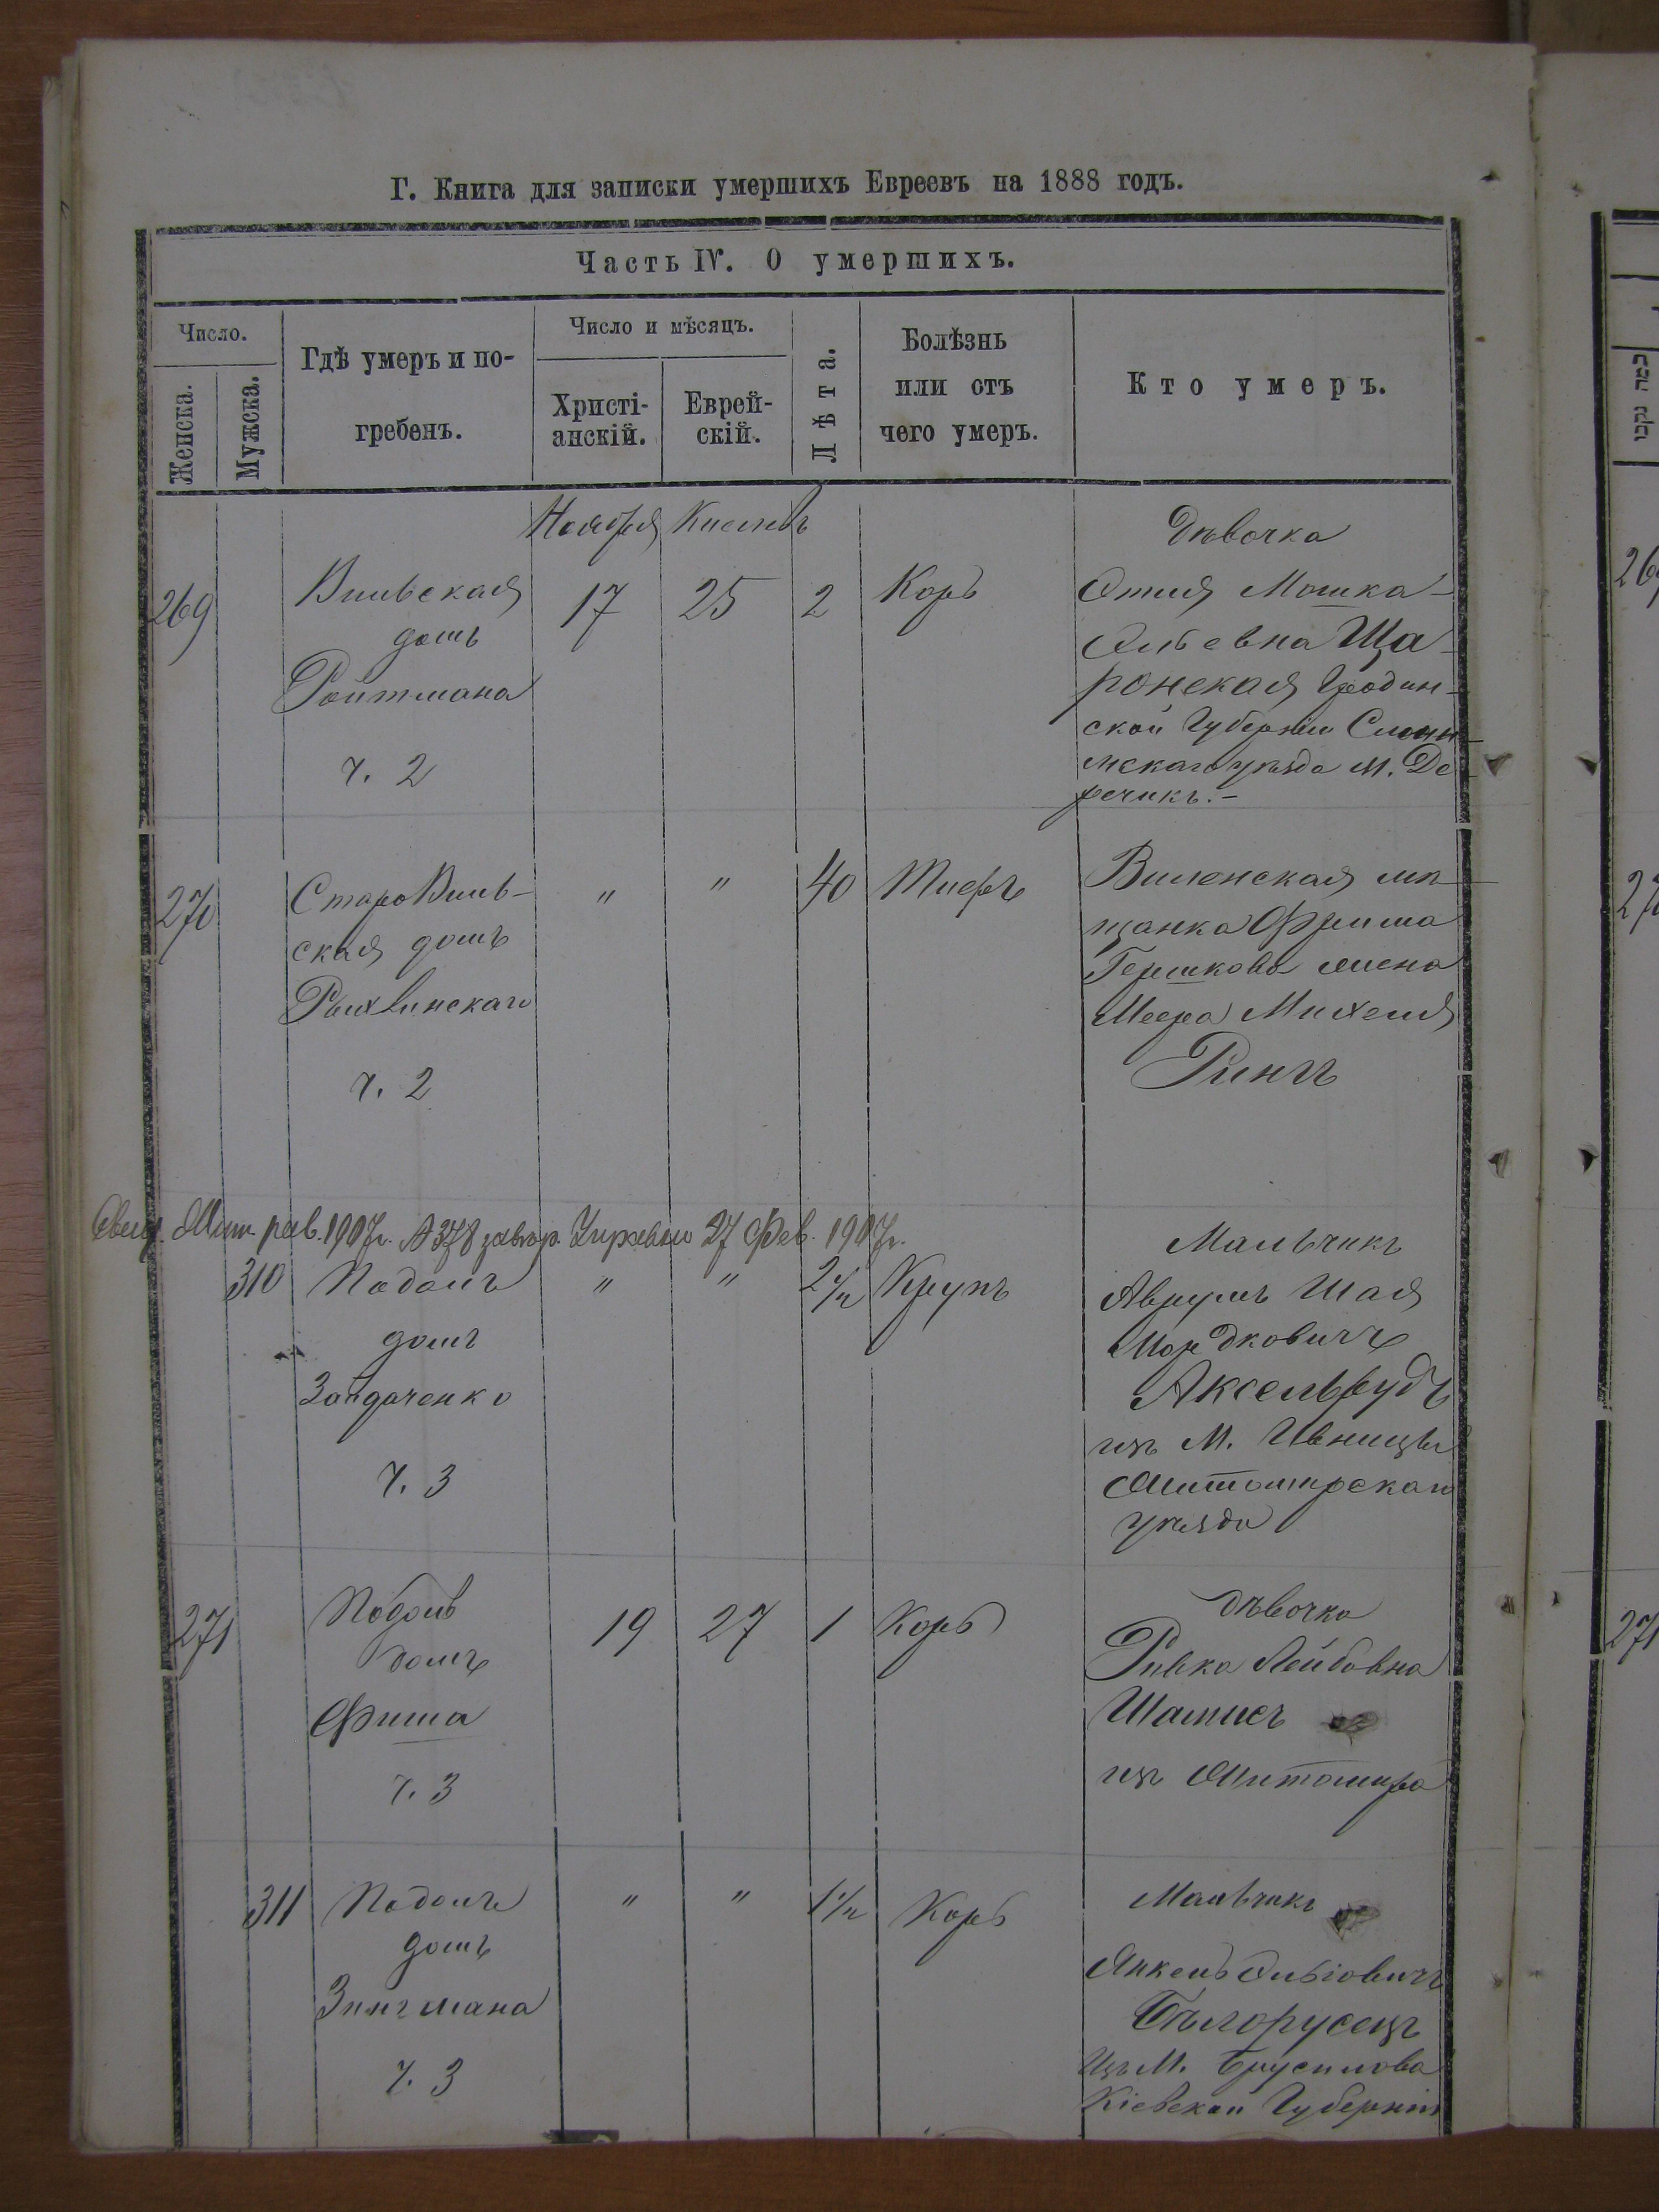 Г. Книга для записки умершихъ Евреевъ на 1888 годъ.
Часть IV. О умершихъ.
Число.
Женска.
Мужска.
Гдѣ умеръ и по-
гребенъ.
Число и мѣсяцъ.
Христі-
анскій.
Еврей-
скій.
Лѣта.
Болѣзнь
или отъ
чего умеръ.
Кто умеръ.
Ноября Кислевъ
269
Вильская
домъ
Ройтмана
ч. 2
17
25
2
Корь
Дѣвочка
Мошка-
Ша-
ронская Гродин-
ской Губерніи Слони-
мскаго уѣзда м. Де-
речикъ.-
270
СтароВиль-
ская домъ
Рыхлинскаго
ч. 2
"
"
40
Тифъ
Виленская мѣ-
щанка Фрима
Гершкова жена
Меера Михеля
Рингъ
1907г. 378 27 Фев. 1907г.
310
Подолъ
домъ
Зайдаченко
ч. 3
"
"
2 1/2
Крупъ
Мальчикъ
Аврумъ Шая
Мордковичъ
Аксельрудъ
изъ М. Ивницы
Житомирскаго
уѣзда
271
Подолъ
домъ
Фиша
ч. 3
19
27
1
Корь
дѣвочка
Ривка Лейбовна
изъ Житомира
311
Подолъ
домъ
Зингмана
ч. 3
"
"
1 1/2
Корь
Мальчикъ
Янкель
Бѣлорусецъ
Изъ М. Брусилова
Кіевской Губерніи
269
270
271